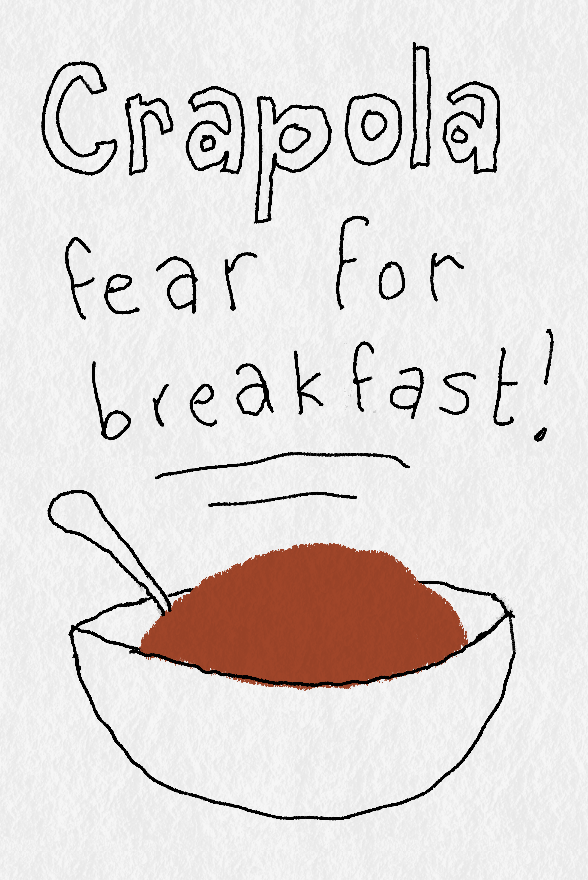 Crapola
fear for
breakfast!